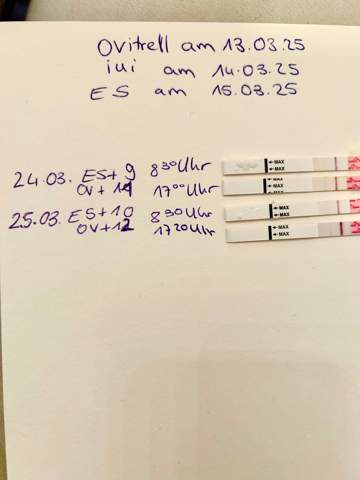 Ovitrell am 13.03.25
iui am 14.03.25
ES am 15.03.25
24.03. ES+9 8³⁰Uhr
OV+11 17⁰⁰Uhr
25.03. ES+10 8³⁰Uhr
OV+12 17²⁰Uhr
←MAX
←MAX
←MAX
←MAX
←MAX
←MAX
←MAX
←MAX